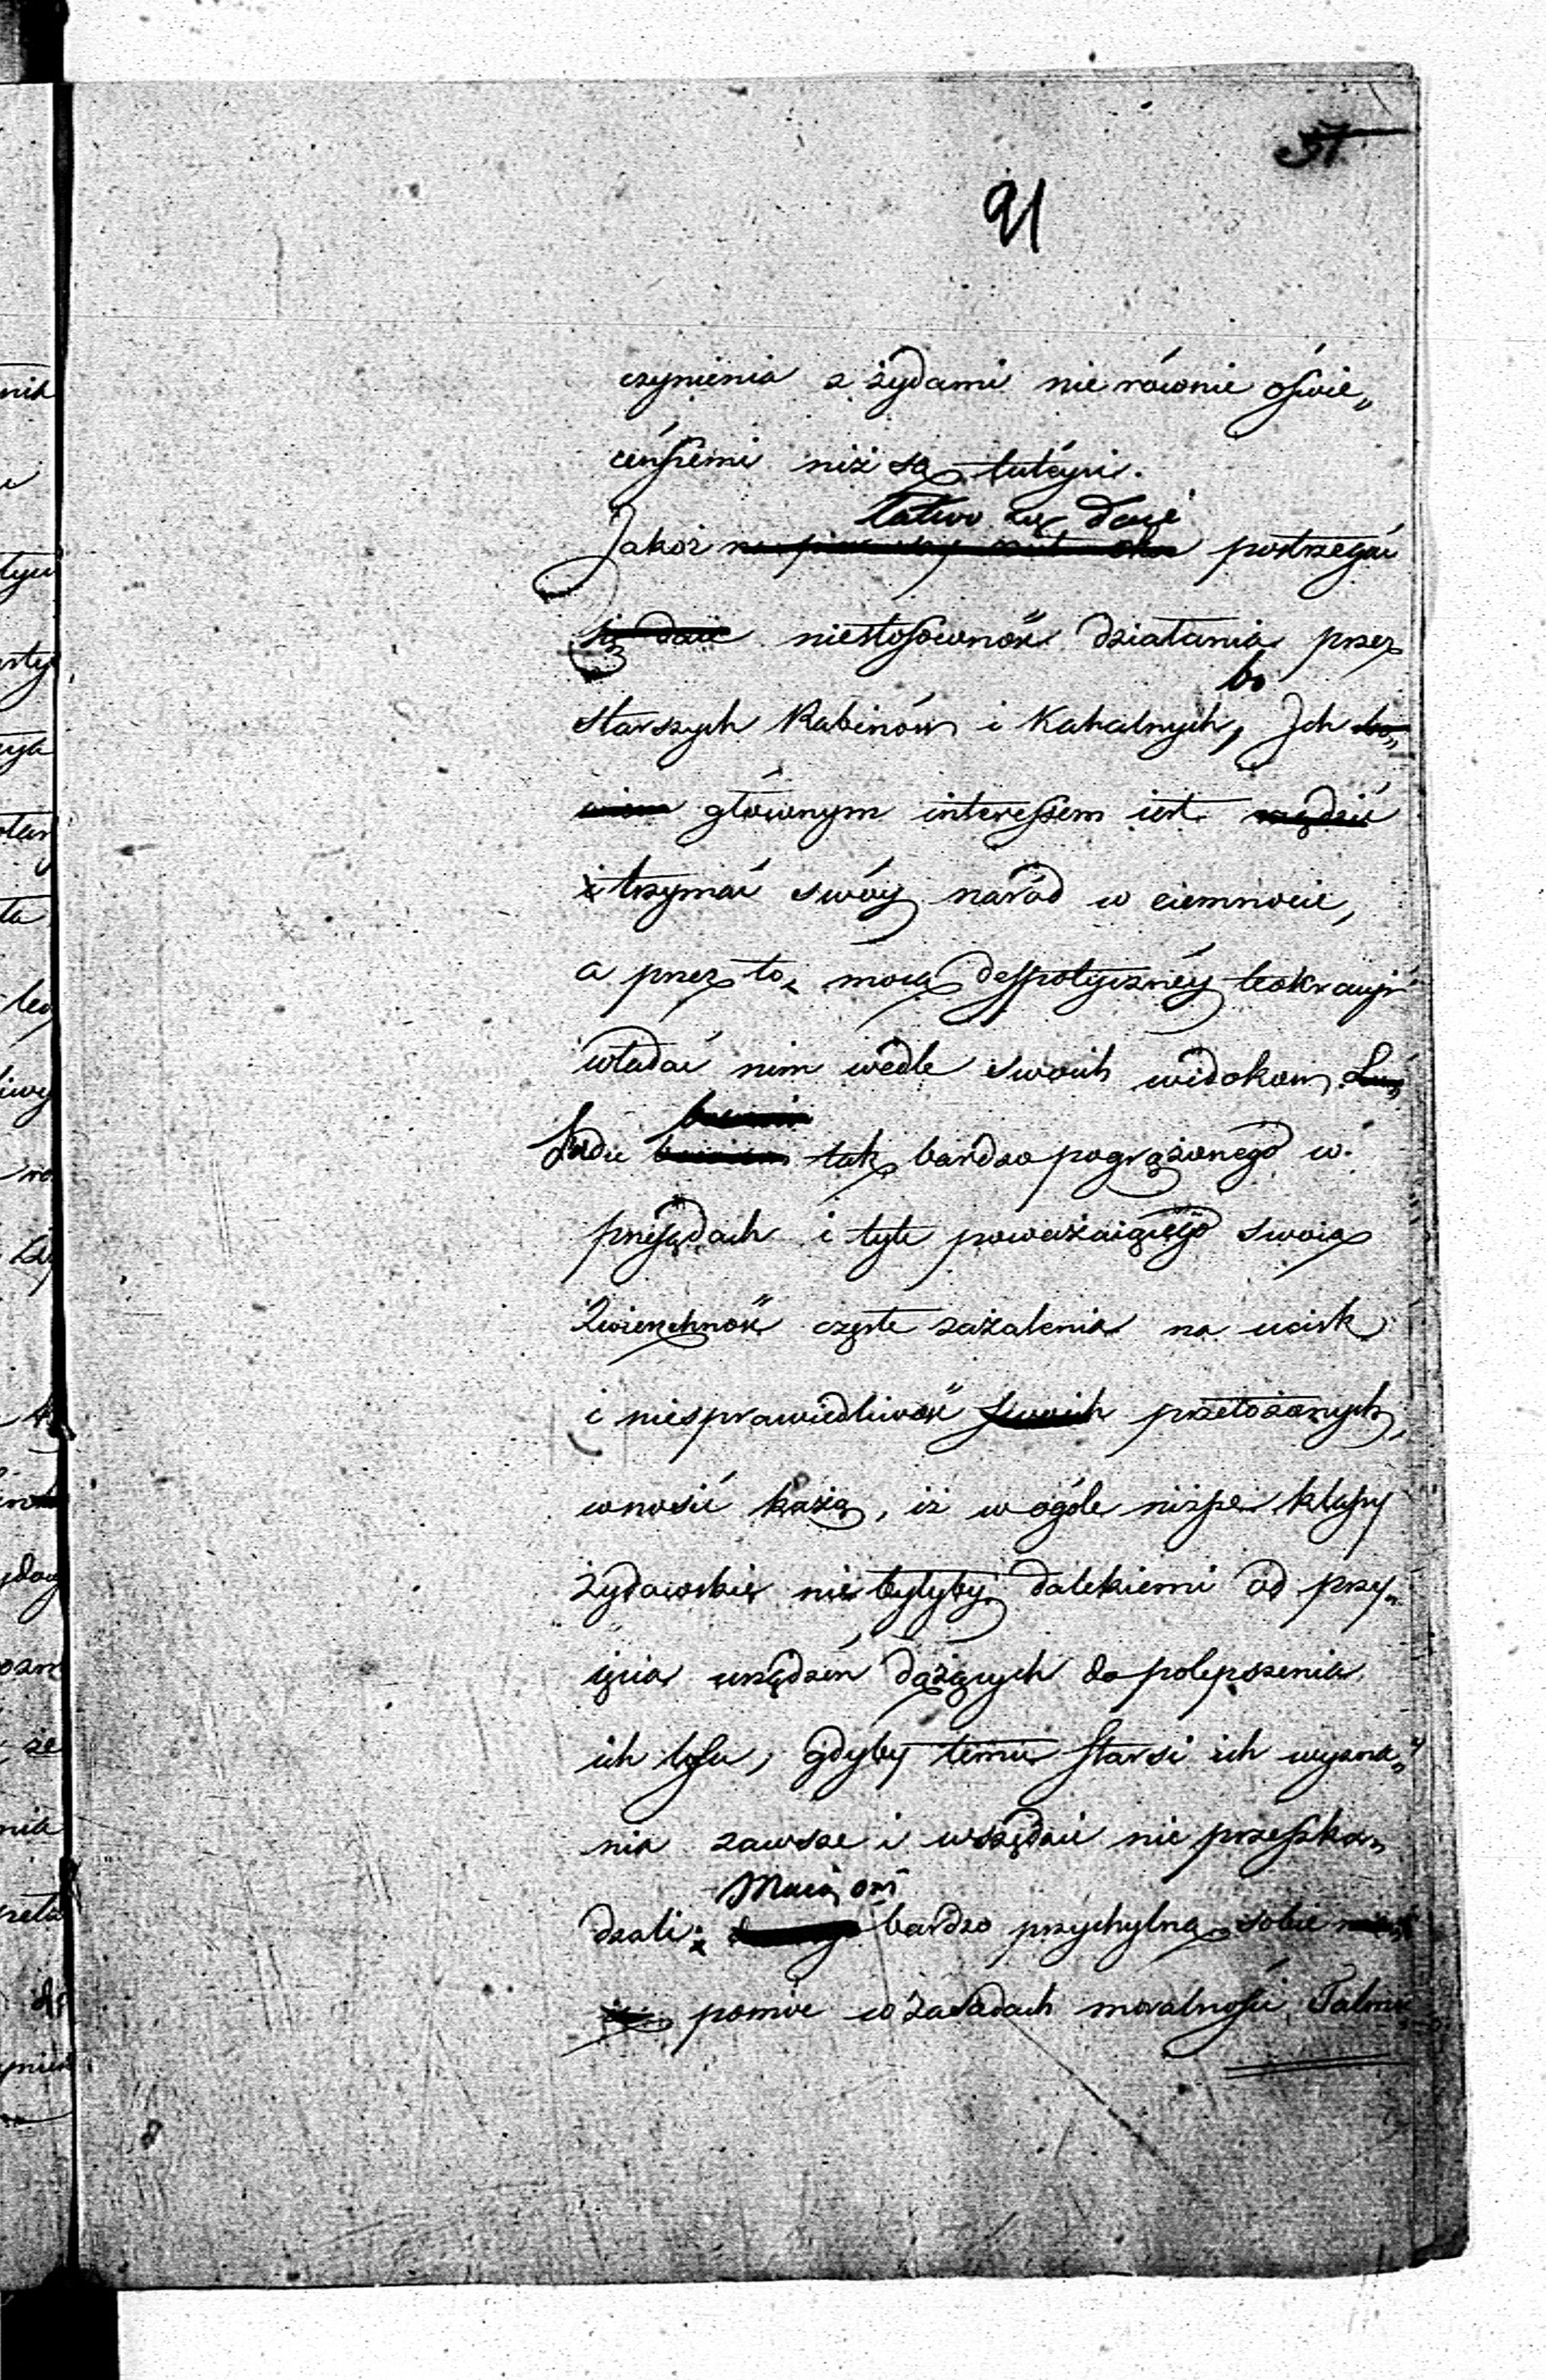 37
91
czynienia z żydami nierównie oświe„
ceńszemi niż są tuteysi.
łatwo się daie
Jakoż na pierwszy rzut oka postrzegać
się daie niestosowność działania przez
bo
starszych Rabinów i Kahalnych, Ich bo„
wiem głównym interessem iest rządzić
i trzymać swóy naród w ciemnocie,
a przez to, mocą despotyczney teokracyi
władać nim wedle swoich widoków. Lu„
Ludu bowiem tak bardzo pogrążonego w
przesądach i tyle poważaiącego swoią
Zwierzchność częste zażalenia na ucisk
i niesprawiedliwość swoich przełożonych,
wnosić każą, iż w ogóle niższe klassy
żydowskie nie byłyby dalekiemi od przy„
ięcia urządzeń dążących do polepszenia
ich losu, gdyby temu starsi ich wyzna„
nia zawsze i wszędzie nie przeszka„
Maią oni
dzali: bardzo przychylną sobie
pomoc w zasadach moralności Talmu„